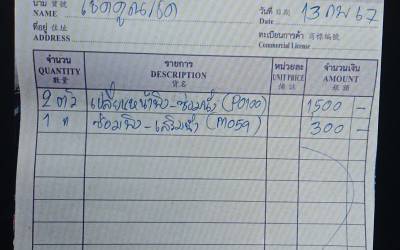 นาม 寶號
NAME
วันที่ 日期 13 กพ 67
Date
ที่อยู่ 住址
ADDRESS
ทะเบียนการค้า 商標編號
Commercial License
จำนวน QUANTITY 數量
รายการ DESCRIPTION 貨名
หน่วยละ UNIT PRICE 備註
จำนวนเงิน AMOUNT 銀額
2 ตัว เปลี่ยนหน้าพิง-ซ่อมนั่ง (P0100) 1,500 -
1 " ซ่อมพิง-เสริมนั่ง (M059) 300 -